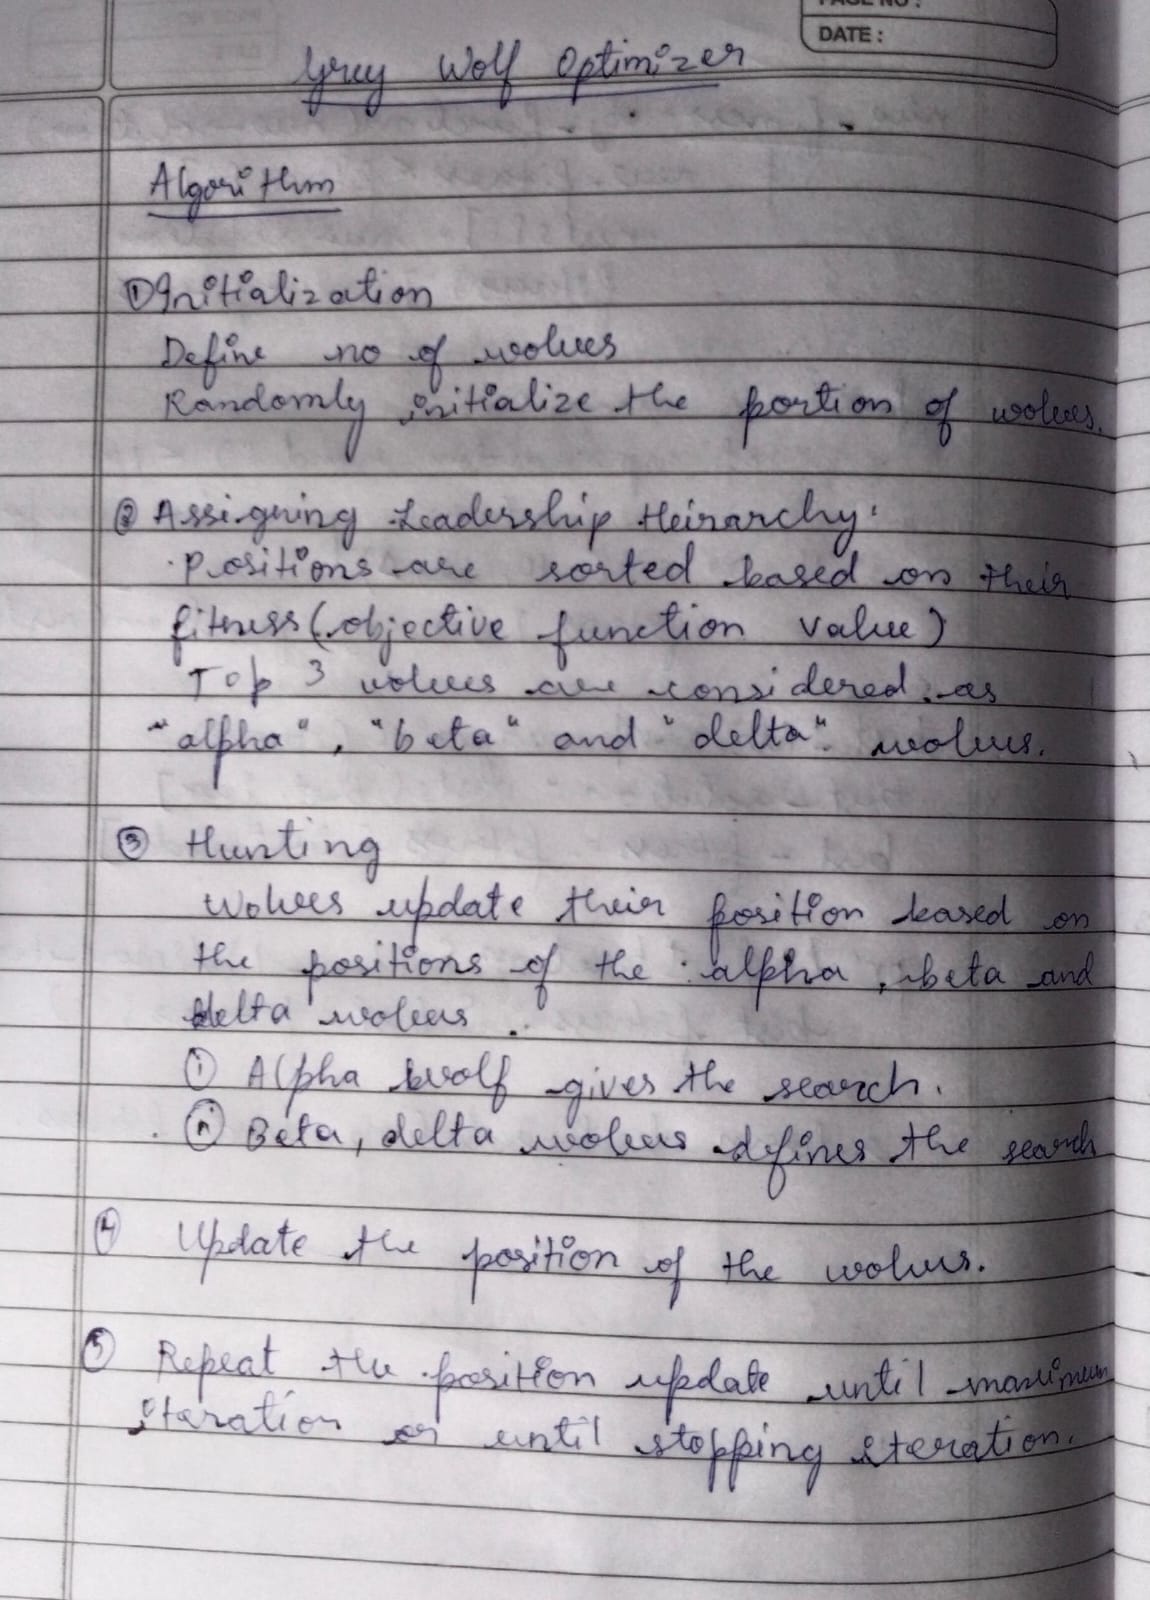 PAGE NO :
DATE :
Grey Wolf Optimizer
Algorithm
① Initialization
Define no of wolves
Randomly initialize the portion of wolves.
② Assigning Leadership Heirarchy:
· Positions are sorted based on their
fitness (objective function value)
Top 3 wolves are considered as
"alpha", "beta" and "delta" wolves.
③ Hunting
Wolves update their position based on
the positions of the alpha, beta and
delta wolves.
① Alpha wolf gives the search.
② Beta, delta wolves defines the search
④ Update the position of the wolves.
⑤ Repeat the position update until maximum
iteration or until stopping iteration.